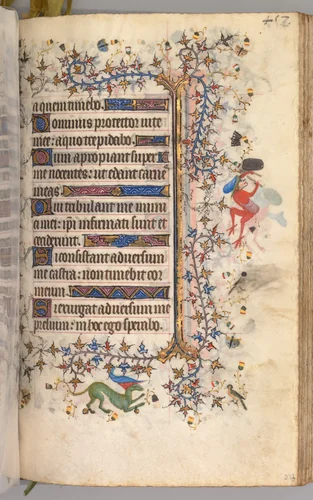 a quem timebo.
Dominus protector uite
mee: a quo trepidabo.
Dum apropiant super
me nocentes: ut edant carnes
meas.
Qui tribulant me inimi
ci mei: ipi infirmati sunt et
ceciderunt.
Si consistant aduersum
me castra: non timebit cor
meum.
Si exurgat aduersum me
prelium: in hoc ego sperabo.